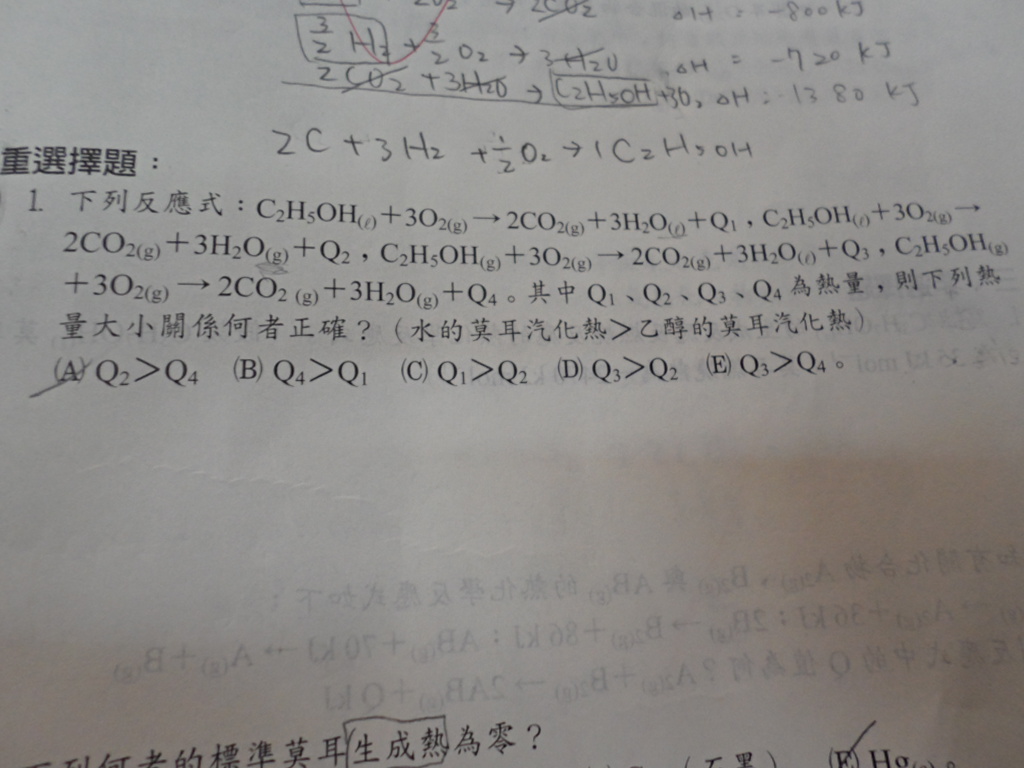 2CO₂ ΔH = -800 kJ
3/2 H₂ + 3/2 O₂ → 3H₂O ΔH = -720 kJ
2CO₂ + 3H₂O → C₂H₅OH + 3O₂ ΔH = 1380 kJ
2C + 3H₂ + 1/2 O₂ → 1C₂H₅OH
重選擇題：
1. 下列反應式：C₂H₅OH(ℓ)＋3O₂(g)→2CO₂(g)＋3H₂O(ℓ)＋Q₁，C₂H₅OH(ℓ)＋3O₂(g)→
2CO₂(g)＋3H₂O(g)＋Q₂，C₂H₅OH(g)＋3O₂(g)→2CO₂(g)＋3H₂O(ℓ)＋Q₃，C₂H₅OH(g)
＋3O₂(g)→2CO₂(g)＋3H₂O(g)＋Q₄。其中 Q₁、Q₂、Q₃、Q₄ 為熱量，則下列熱
量大小關係何者正確？（水的莫耳汽化熱＞乙醇的莫耳汽化熱）
(A) Q₂＞Q₄ (B) Q₄＞Q₁ (C) Q₁＞Q₂ (D) Q₃＞Q₂ (E) Q₃＞Q₄。
下列何者的標準莫耳生成熱為零？
（石墨） (E) Hg